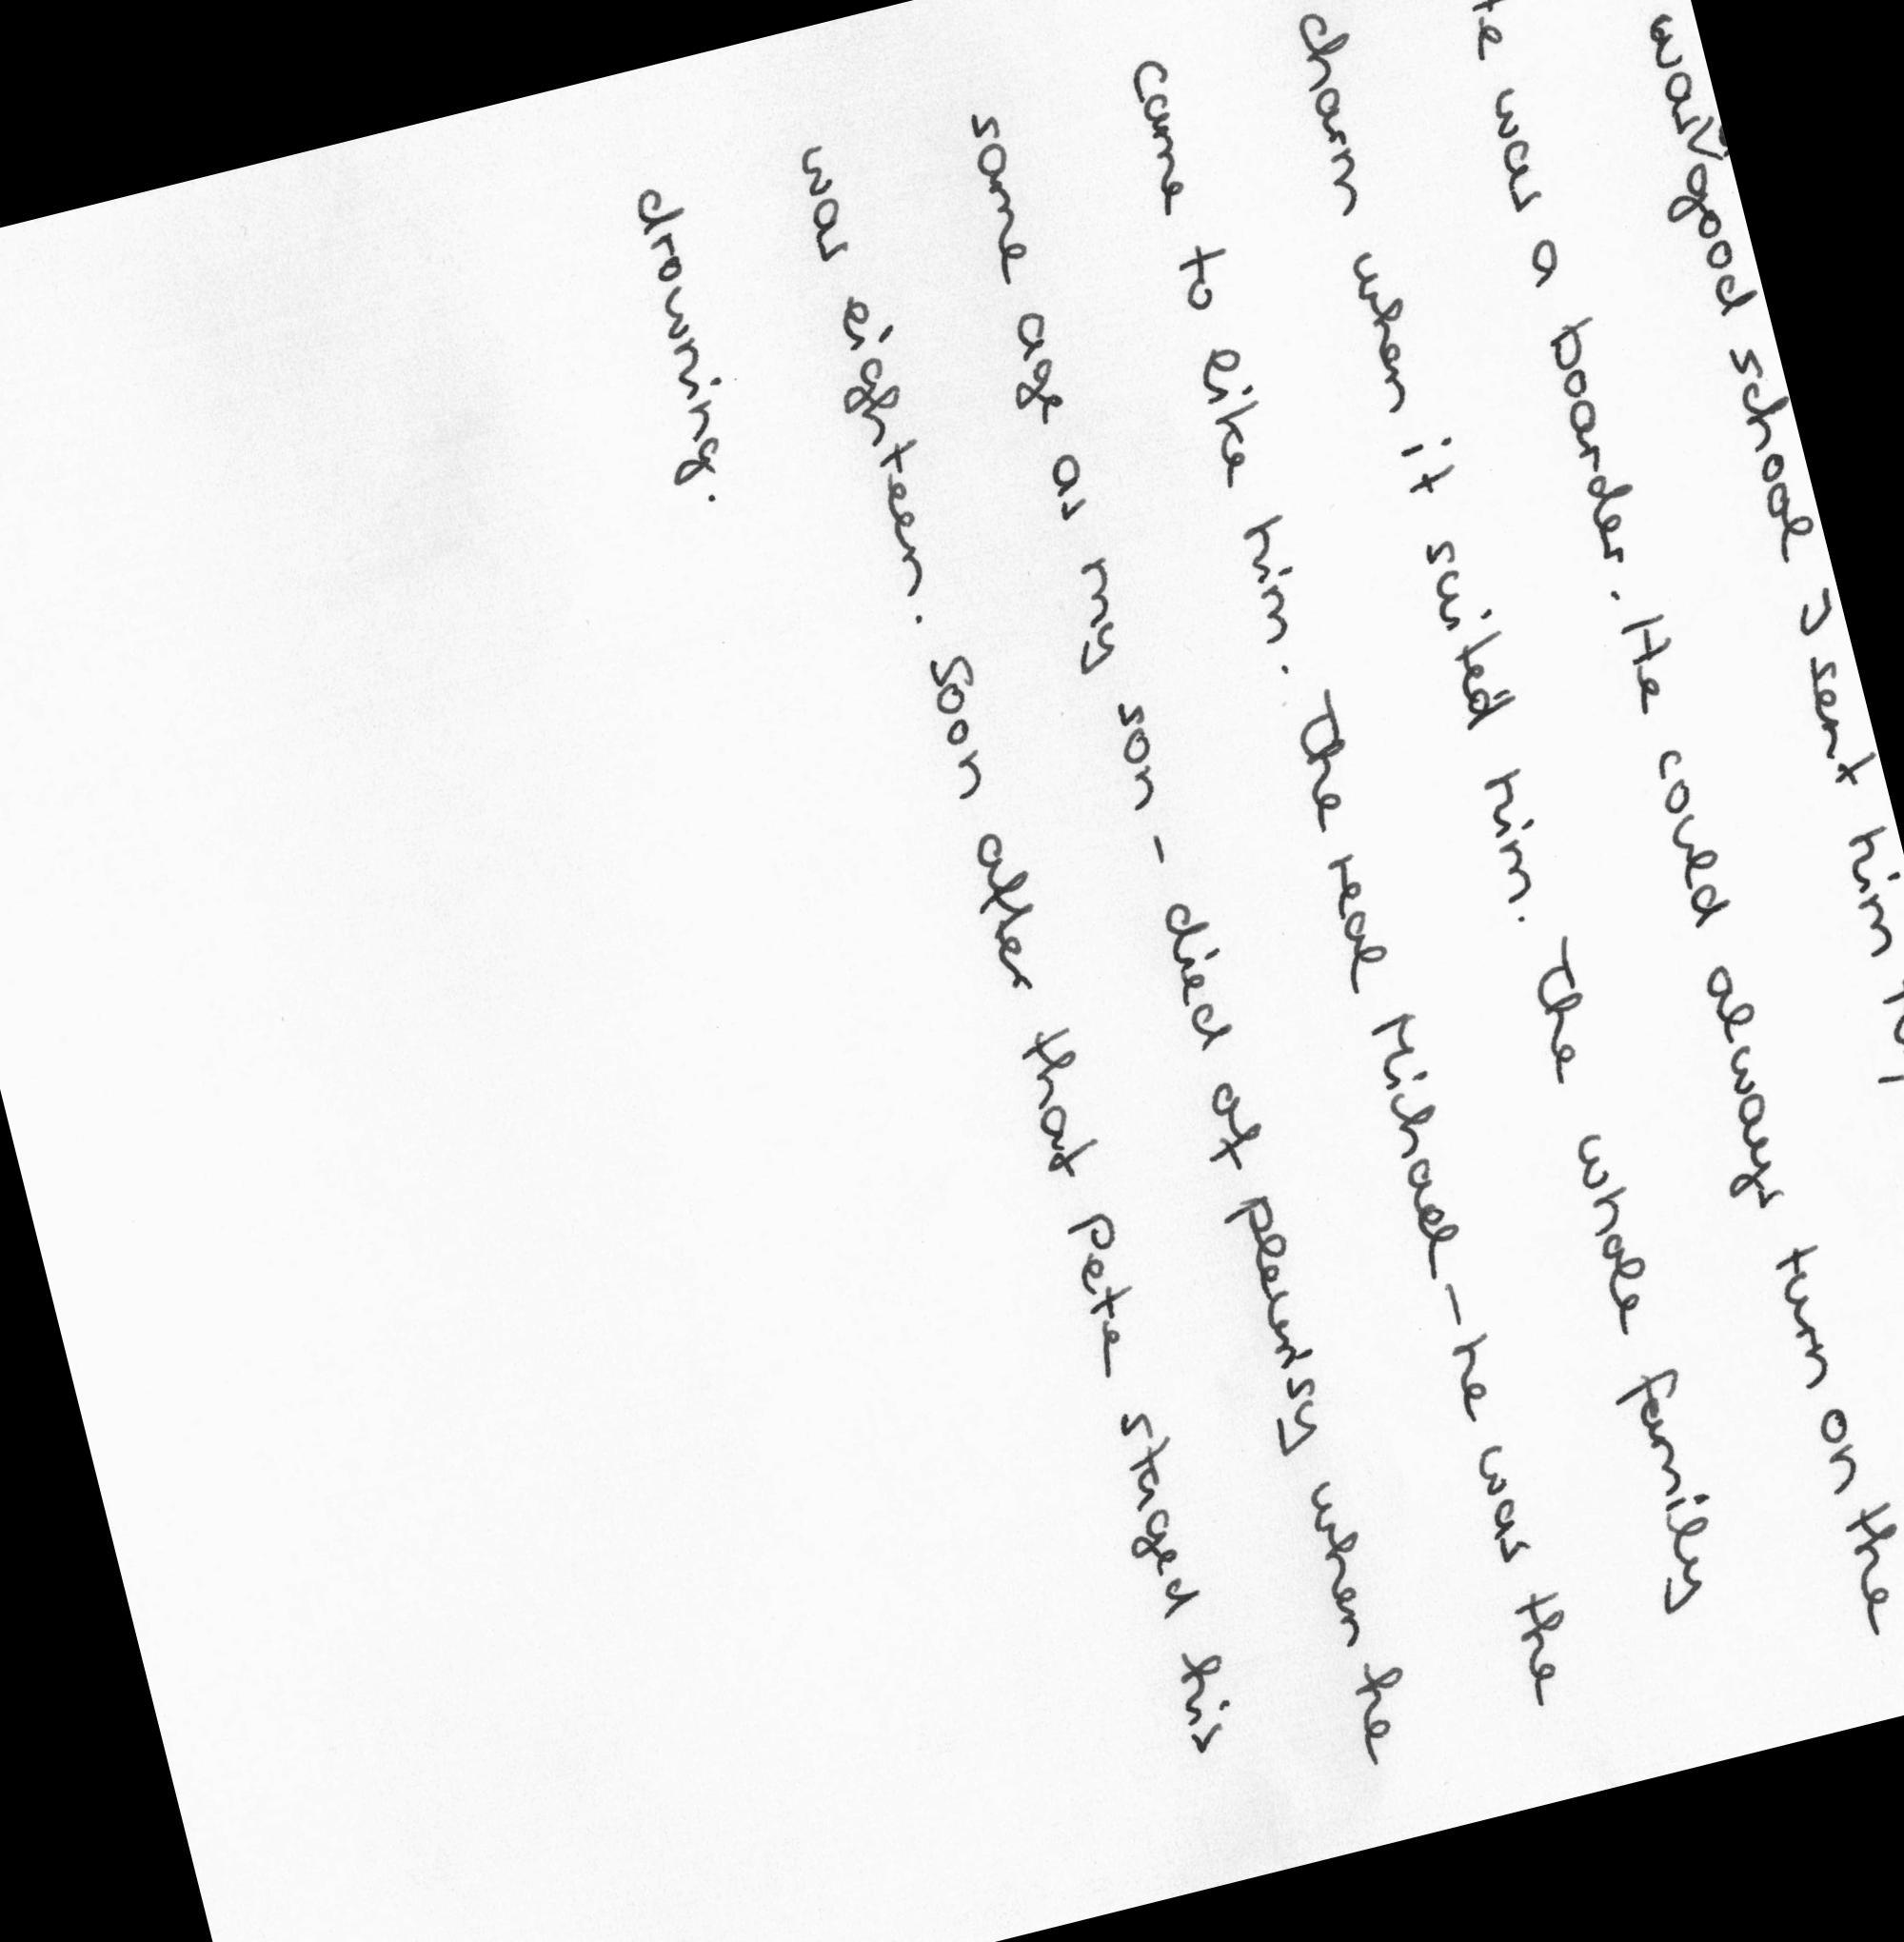 was good school I sent him
was a boarder. He could always turn on the
charm when it suited him. The whole family
came to like him. The real Michael - he was the
same age as my son - died of pleurisy when he
was eighteen. Soon after that Pete staged his
drowning.